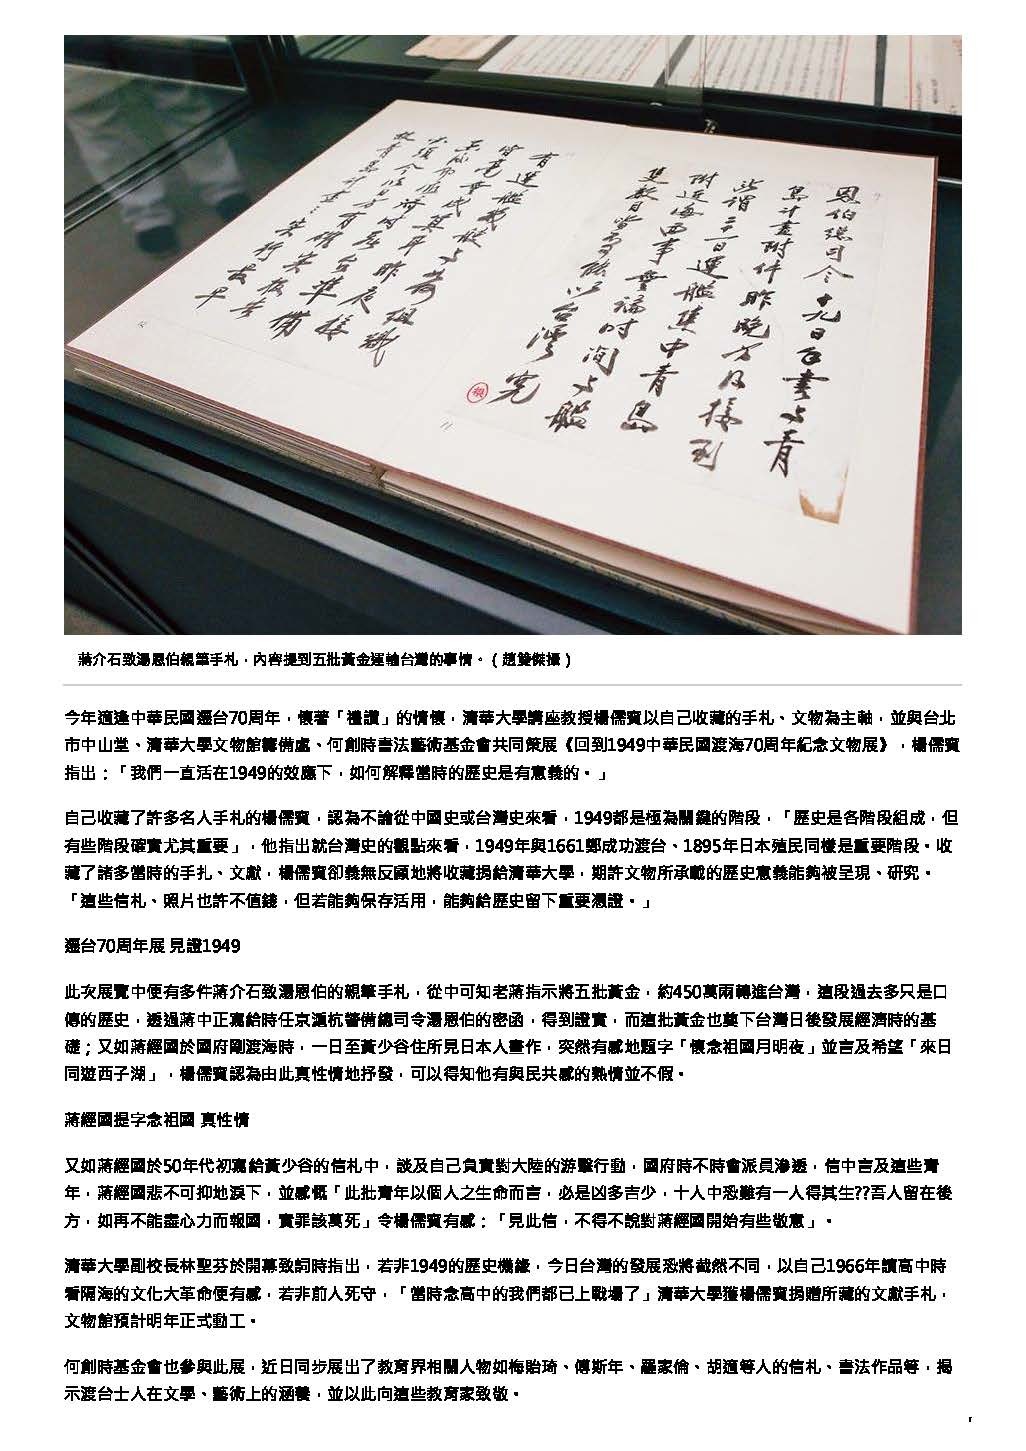 恩伯總司令十九日手書與青
島計畫附件昨晚方及接到
此謂二十一日運艦集中青島
附近海面事無論時間與艦
隻數目皆
有運艦載
蔣介石致湯恩伯親筆手札，內容提到五批黃金運輸台灣的事情。（趙雙傑攝）
今年適逢中華民國遷台70周年，懷著「禮讚」的情懷，清華大學講座教授楊儒賓以自己收藏的手札、文物為主軸，並與台北
市中山堂、清華大學文物館籌備處、何創時書法藝術基金會共同策展《回到1949中華民國渡海70周年紀念文物展》，楊儒賓
指出：「我們一直活在1949的效應下，如何解釋當時的歷史是有意義的。」
自己收藏了許多名人手札的楊儒賓，認為不論從中國史或台灣史來看，1949都是極為關鍵的階段，「歷史是各階段組成，但
有些階段確實尤其重要」，他指出就台灣史的觀點來看，1949年與1661鄭成功渡台、1895年日本殖民同樣是重要階段。收
藏了諸多當時的手札、文獻，楊儒賓卻義無反顧地將收藏捐給清華大學，期許文物所承載的歷史意義能夠被呈現、研究。
「這些信札、照片也許不值錢，但若能夠保存活用，能夠給歷史留下重要憑證。」
遷台70周年展 見證1949
此次展覽中便有多件蔣介石致湯恩伯的親筆手札，從中可知老蔣指示將五批黃金，約450萬兩轉進台灣，這段過去多只是口
傳的歷史，透過蔣中正寫給時任京滬杭警備總司令湯恩伯的密函，得到證實，而這批黃金也奠下台灣日後發展經濟時的基
礎；又如蔣經國於國府剛渡海時，一日至黃少谷住所見日本人畫作，突然有感地題字「懷念祖國月明夜」並言及希望「來日
同遊西子湖」，楊儒賓認為由此真性情地抒發，可以得知他有與民共感的熱情並不假。
蔣經國提字念祖國 真性情
又如蔣經國於50年代初寫給黃少谷的信札中，談及自己負責對大陸的游擊行動，國府時不時會派員滲透，信中言及這些青
年，蔣經國悲不可抑地淚下，並感慨「此批青年以個人之生命而言，必是凶多吉少，十人中恐難有一人得其生??吾人留在後
方，如再不能盡心力而報國，實罪該萬死」令楊儒賓有感：「見此信，不得不說對蔣經國開始有些敬意」。
清華大學副校長林聖芬於開幕致詞時指出，若非1949的歷史機緣，今日台灣的發展恐將截然不同，以自己1966年讀高中時
看隔海的文化大革命便有感，若非前人死守，「當時念高中的我們都已上戰場了」清華大學獲楊儒賓捐贈所藏的文獻手札，
文物館預計明年正式動工。
何創時基金會也參與此展，近日同步展出了教育界相關人物如梅貽琦、傅斯年、羅家倫、胡適等人的信札、書法作品等，揭
示渡台士人在文學、藝術上的涵養，並以此向這些教育家致敬。